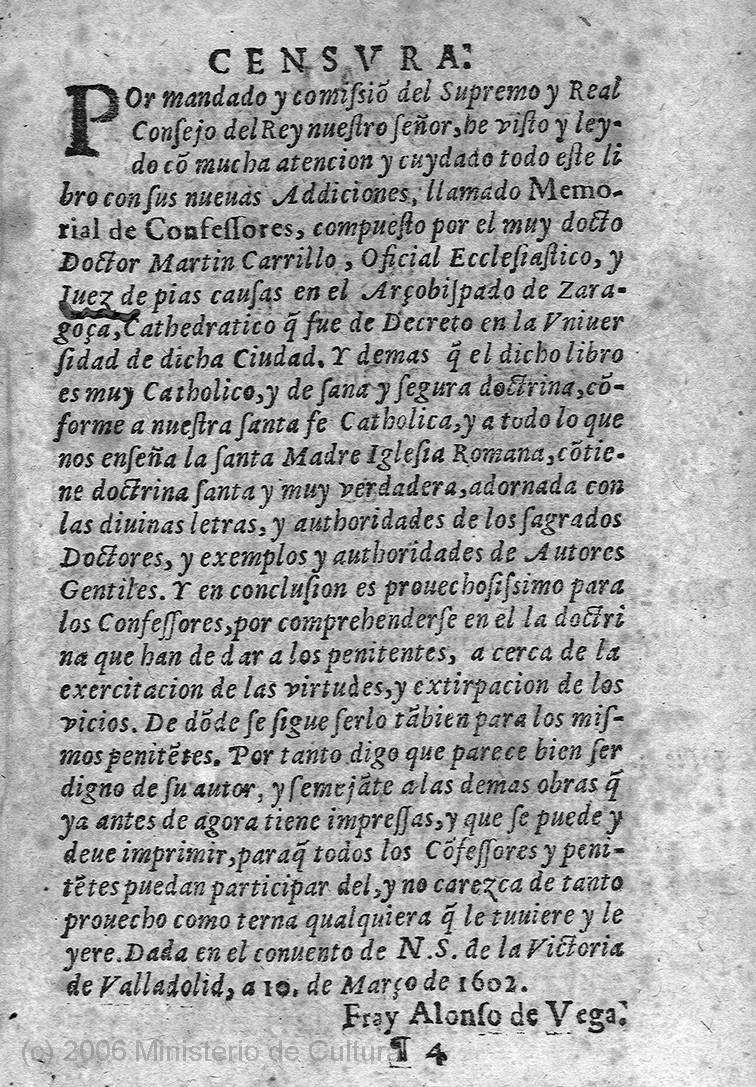 CENSVRA.
POr mandado y comiſsiõ del Supremo y Real
Conſejo del Rey nueſtro ſeñor, he viſto y ley-
do cõ mucha atencion y cuydado todo eſte li
bro con ſus nueuas Addiciones, llamado Memo-
rial de Confeſſores, compueſto por el muy docto
Doctor Martin Carrillo, Oficial Eccleſiaſtico, y
Iuez de pias cauſas en el Arçobiſpado de Zara-
goça, Cathedratico q̃ fue de Decreto en la Vniuer
ſidad de dicha Ciudad. Y demas q̃ el dicho libro
es muy Catholico, y de ſana y ſegura doctrina, cõ-
forme a nueſtra ſanta fe Catholica, y a todo lo que
nos enſeña la ſanta Madre Igleſia Romana, cõtie-
ne doctrina ſanta y muy verdadera, adornada con
las diuinas letras, y authoridades de los ſagrados
Doctores, y exemplos y authoridades de Autores
Gentiles. Y en concluſion es prouechoſiſsimo para
los Confeſſores, por comprehenderſe en el la doctri
na que han de dar a los penitentes, a cerca de la
exercitacion de las virtudes, y extirpacion de los
vicios. De dõde ſe ſigue ſerlo tãbien para los miſ-
mos penitẽtes. Por tanto digo que parece bien ſer
digno de ſu autor, y ſemejãte a las demas obras q̃
ya antes de agora tiene impreſſas, y que ſe puede y
deue imprimir, paraq̃ todos los Cõfeſſores y peni-
tẽtes puedan participar del, y no carezca de tanto
prouecho como terna qualquiera q̃ le tuuiere y le
yere. Dada en el conuento de N.S. de la Victoria
de Valladolid, a 10. de Março de 1602.
Fray Alonſo de Vega.
¶ 4
(c) 2006 Ministerio de Cultura